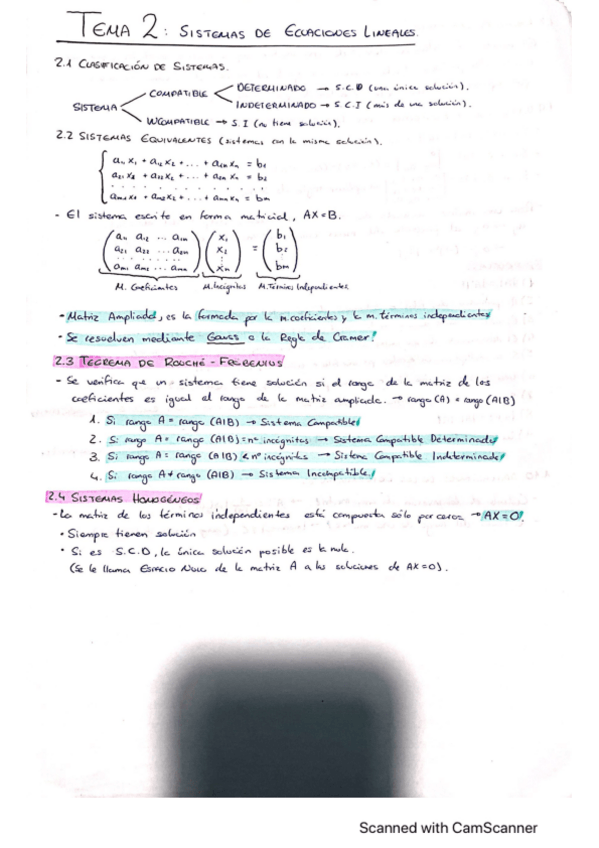 TEMA 2: SISTEMAS DE ECUACIONES LINEALES.
2.1 CLASIFICACIÓN DE SISTEMAS.
SISTEMA
COMPATIBLE
DETERMINADO → S.C.D (una única solución).
INDETERMINADO → S.C.I (más de una solución).
INCOMPATIBLE → S.I (no tiene solución).
2.2 SISTEMAS EQUIVALENTES (sistemas con la misma solución).
a11 x1 + a12 x2 + ... + a1n xn = b1
a21 x1 + a22 x2 + ... + a2n xn = b2
. . . . . . . . . . . . . .
am1 x1 + am2 x2 + ... + amn xn = bm
- El sistema escrito en forma matricial, AX=B.
a11 a12 ... a1n x1 b1
a21 a22 ... a2n x2 = b2
. . . . . . . . . .
am1 am2 ... amn xn bm
M. Coeficientes M. Incógnitas M. Términos Independientes
• Matriz Ampliada, es la formada por la m.coeficientes y la m.términos independientes
• Se resuelven mediante Gauss o la Regla de Cramer.
2.3 TEOREMA DE ROUCHÉ - FRÖBENIUS
- Se verifica que un sistema tiene solución si el rango de la matriz de los
coeficientes es igual al rango de la matriz ampliada. → rango (A) = rango (A|B)
1. Si rango A = rango (A|B) → Sistema Compatible
2. Si rango A = rango (A|B) = nº incógnitas → Sistema Compatible Determinado
3. Si rango A = rango (A|B) < nº incógnits → Sistema Compatible Indeterminado
4. Si rango A ≠ rango (A|B) → Sistema Incompatible
2.4 SISTEMAS HOMOGÉNEOS
- La matriz de los términos independientes está compuesta sólo por ceros → AX=0.
• Siempre tienen solución
• Si es S.C.D, la única solución posible es la nula.
(Se le llama ESPACIO NULO de la matriz A a las soluciones de AX=0).
Scanned with CamScanner